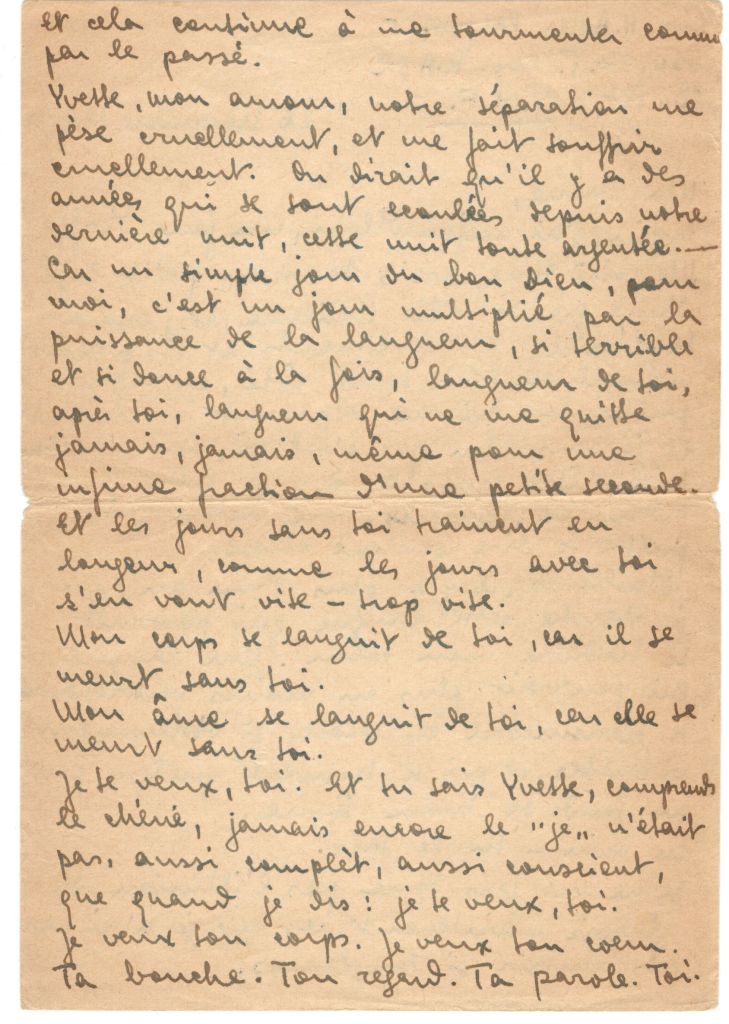 Et cela continue à me tourmenter comme
par le passé.
Yvette, mon amour, notre séparation me
pèse cruellement, et me fait souffrir
cruellement. On dirait qu'il y a des
années qui se sont ecoulées depuis notre
dernière nuit, cette nuit toute argentée.—
Car un simple jour du bon Dieu, pour
moi, c'est un jour multiplié par la
puissance de la langueur, si terrible
et si douce à la fois, langueur de toi,
après toi, langueur qui ne me quitte
jamais, jamais, même pour une
infime fraction d'une petite seconde.
Et les jours sans toi trainent en
longeur, comme les jours avec toi
s'en vont vite – trop vite.
Mon corps se languit de toi, car il se
meurt sans toi.
Mon âme se languit de toi, car elle se
meurt sans toi.
Je te veux, toi. Et tu sais Yvette, comprends
le chéné, jamais encore le "je" n'était
pas, aussi complèt, aussi conscient,
que quand je dis : je te veux, toi.
Je veux ton corps. Je veux ton coeur.
Ta bouche. Ton regard. Ta parole. Toi.